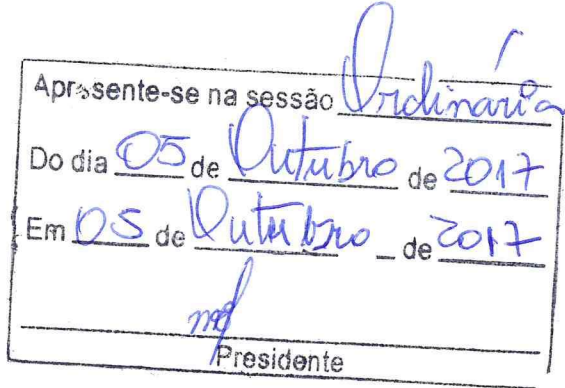 Apresente-se na sessão Ordinária
Do dia 05 de Outubro de 2017
Em 05 de Outubro de 2017
Presidente